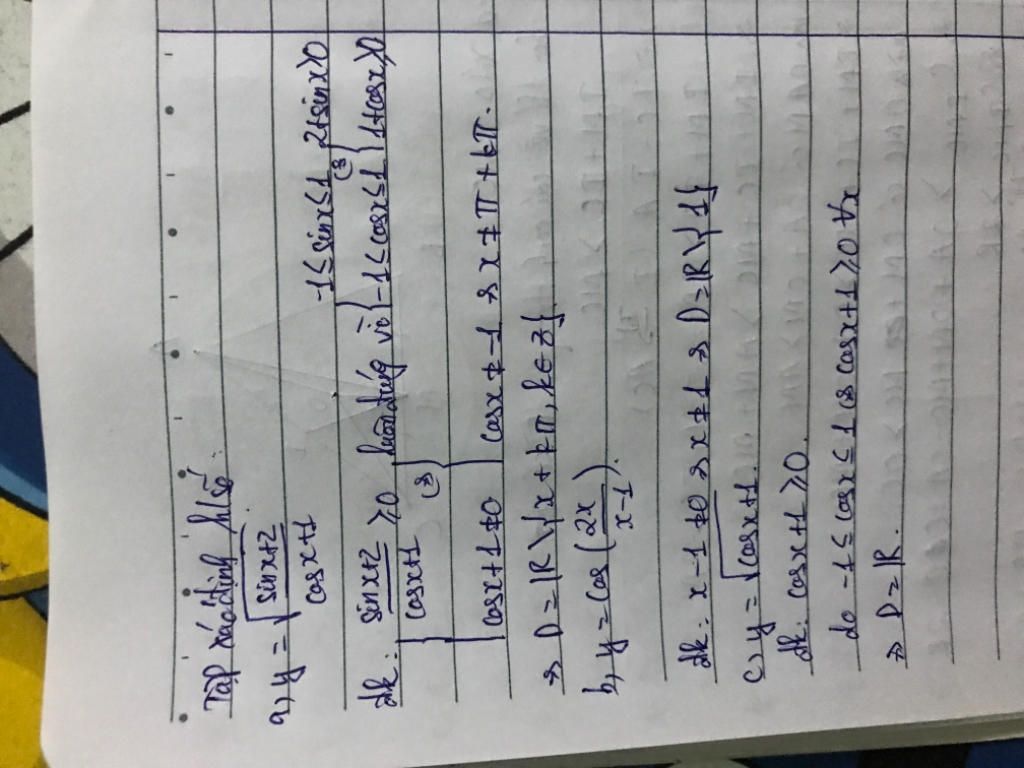 Tập xác định h/số.
a, y = √((sinx+2)/(cosx+1))
-1 ≤ sinx ≤ 1 2+sinx>0
đk: { (sinx+2)/(cosx+1) ≥ 0 (luôn đúng vì { -1 ≤ cosx ≤ 1 ⇔ { 1+cosx≥0
{ cosx+1≠0 ⇔ { cosx ≠ -1 ⇒ x ≠ π + kπ.
⇒ D = ℝ \ { x + kπ, k ∈ Z }
b, y = cos(2x/(x-1)).
đk: x-1≠0 ⇒ x≠1 ⇒ D = ℝ \ {1}
c, y = √(cosx+1).
đk: cosx+1 ≥ 0.
do -1 ≤ cosx ≤ 1 ⇔ cosx+1 ≥ 0 ∀x
⇒ D = ℝ.